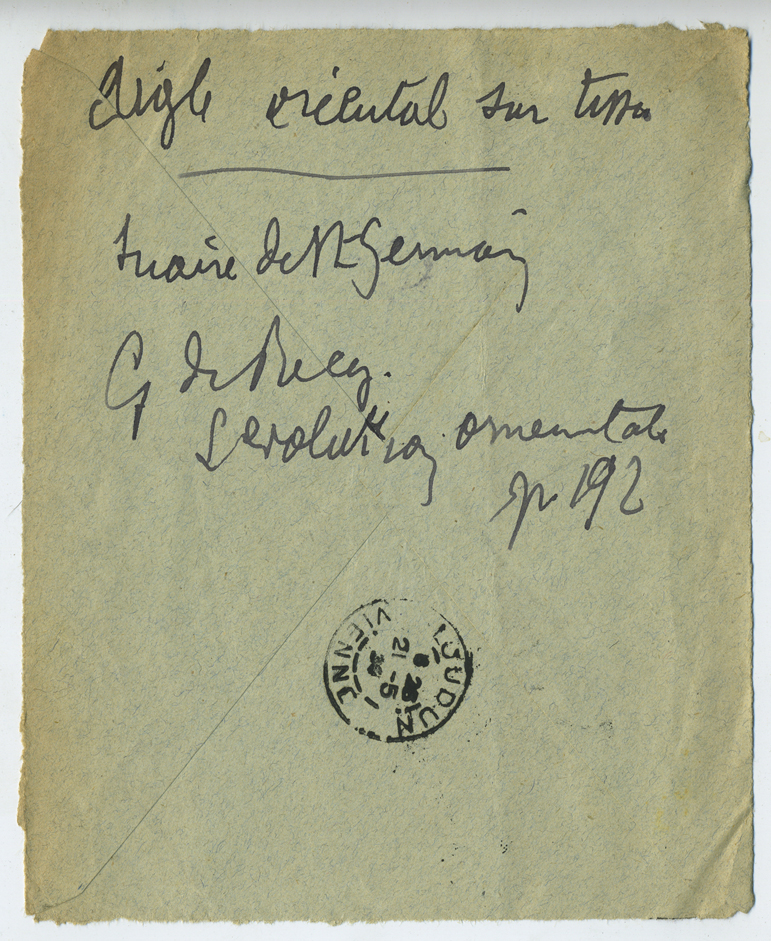 Aigle oriental sur tissu
suaire de St Germain
G de Recy.
L'évolution ornementale
p. 192
LOUDUN
VIENNE
21 -5